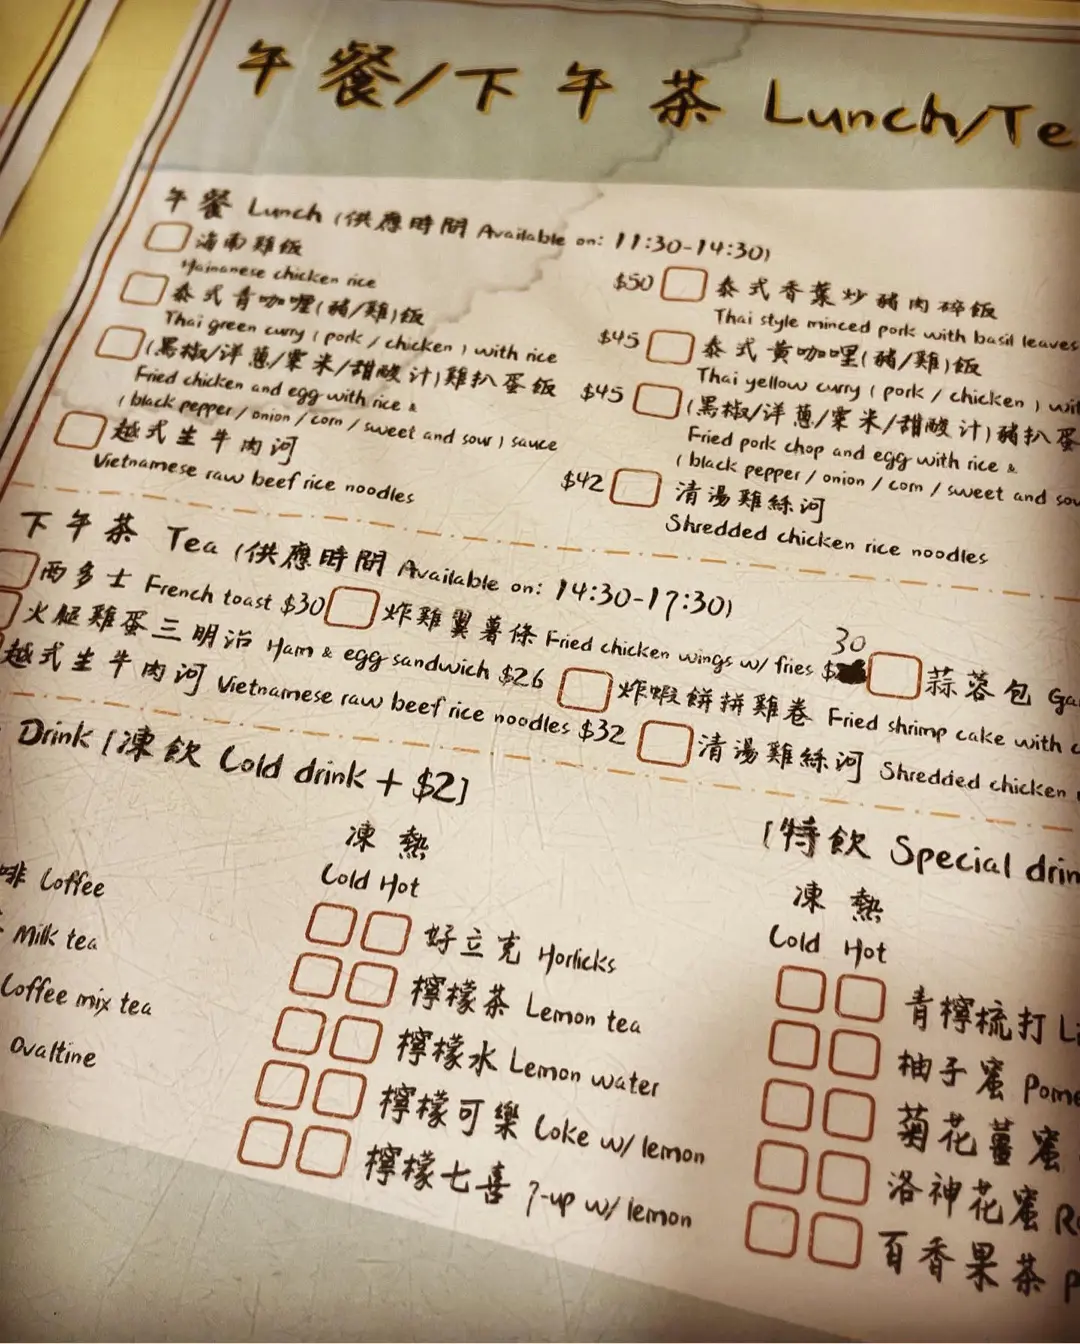 午餐/下午茶 Lunch/Te
午餐 Lunch (供應時間 Available on: 11:30-14:30)
海南雞飯 $50
Hainanese chicken rice
泰式青咖喱(豬/雞)飯 $45
Thai green curry (pork / chicken) with rice
(黑椒/洋蔥/粟米/甜酸汁)雞扒蛋飯 $45
Fried chicken and egg with rice &
(black pepper / onion / corn / sweet and sour) sauce
越式生牛肉河 $42
Vietnamese raw beef rice noodles
泰式香葉炒豬肉碎飯
Thai style minced pork with basil leaves
泰式黃咖哩(豬/雞)飯
Thai yellow curry (pork / chicken) wit
(黑椒/洋蔥/粟米/甜酸汁)豬扒蛋
Fried pork chop and egg with rice &
(black pepper / onion / corn / sweet and sou
清湯雞絲河
Shredded chicken rice noodles
下午茶 Tea (供應時間 Available on: 14:30-17:30)
西多士 French toast $30 炸雞翼薯條 Fried chicken wings w/ fries $30 蒜蓉包 Ga
火腿雞蛋三明治 Ham & egg sandwich $26 炸蝦餅拼雞卷 Fried shrimp cake with c
越式生牛肉河 Vietnamese raw beef rice noodles $32 清湯雞絲河 Shredded chicken
Drink [凍飲 Cold drink + $2]
凍 熱
Cold Hot
啡 Coffee
Milk tea
Coffee mix tea
Ovaltine
好立克 Horlicks
檸檬茶 Lemon tea
檸檬水 Lemon water
檸檬可樂 Coke w/ lemon
檸檬七喜 7-up w/ lemon
[特飲 Special drin
凍 熱
Cold Hot
青檸梳打 Li
柚子蜜 Pome
菊花薑蜜
洛神花蜜 Ro
百香果茶 P